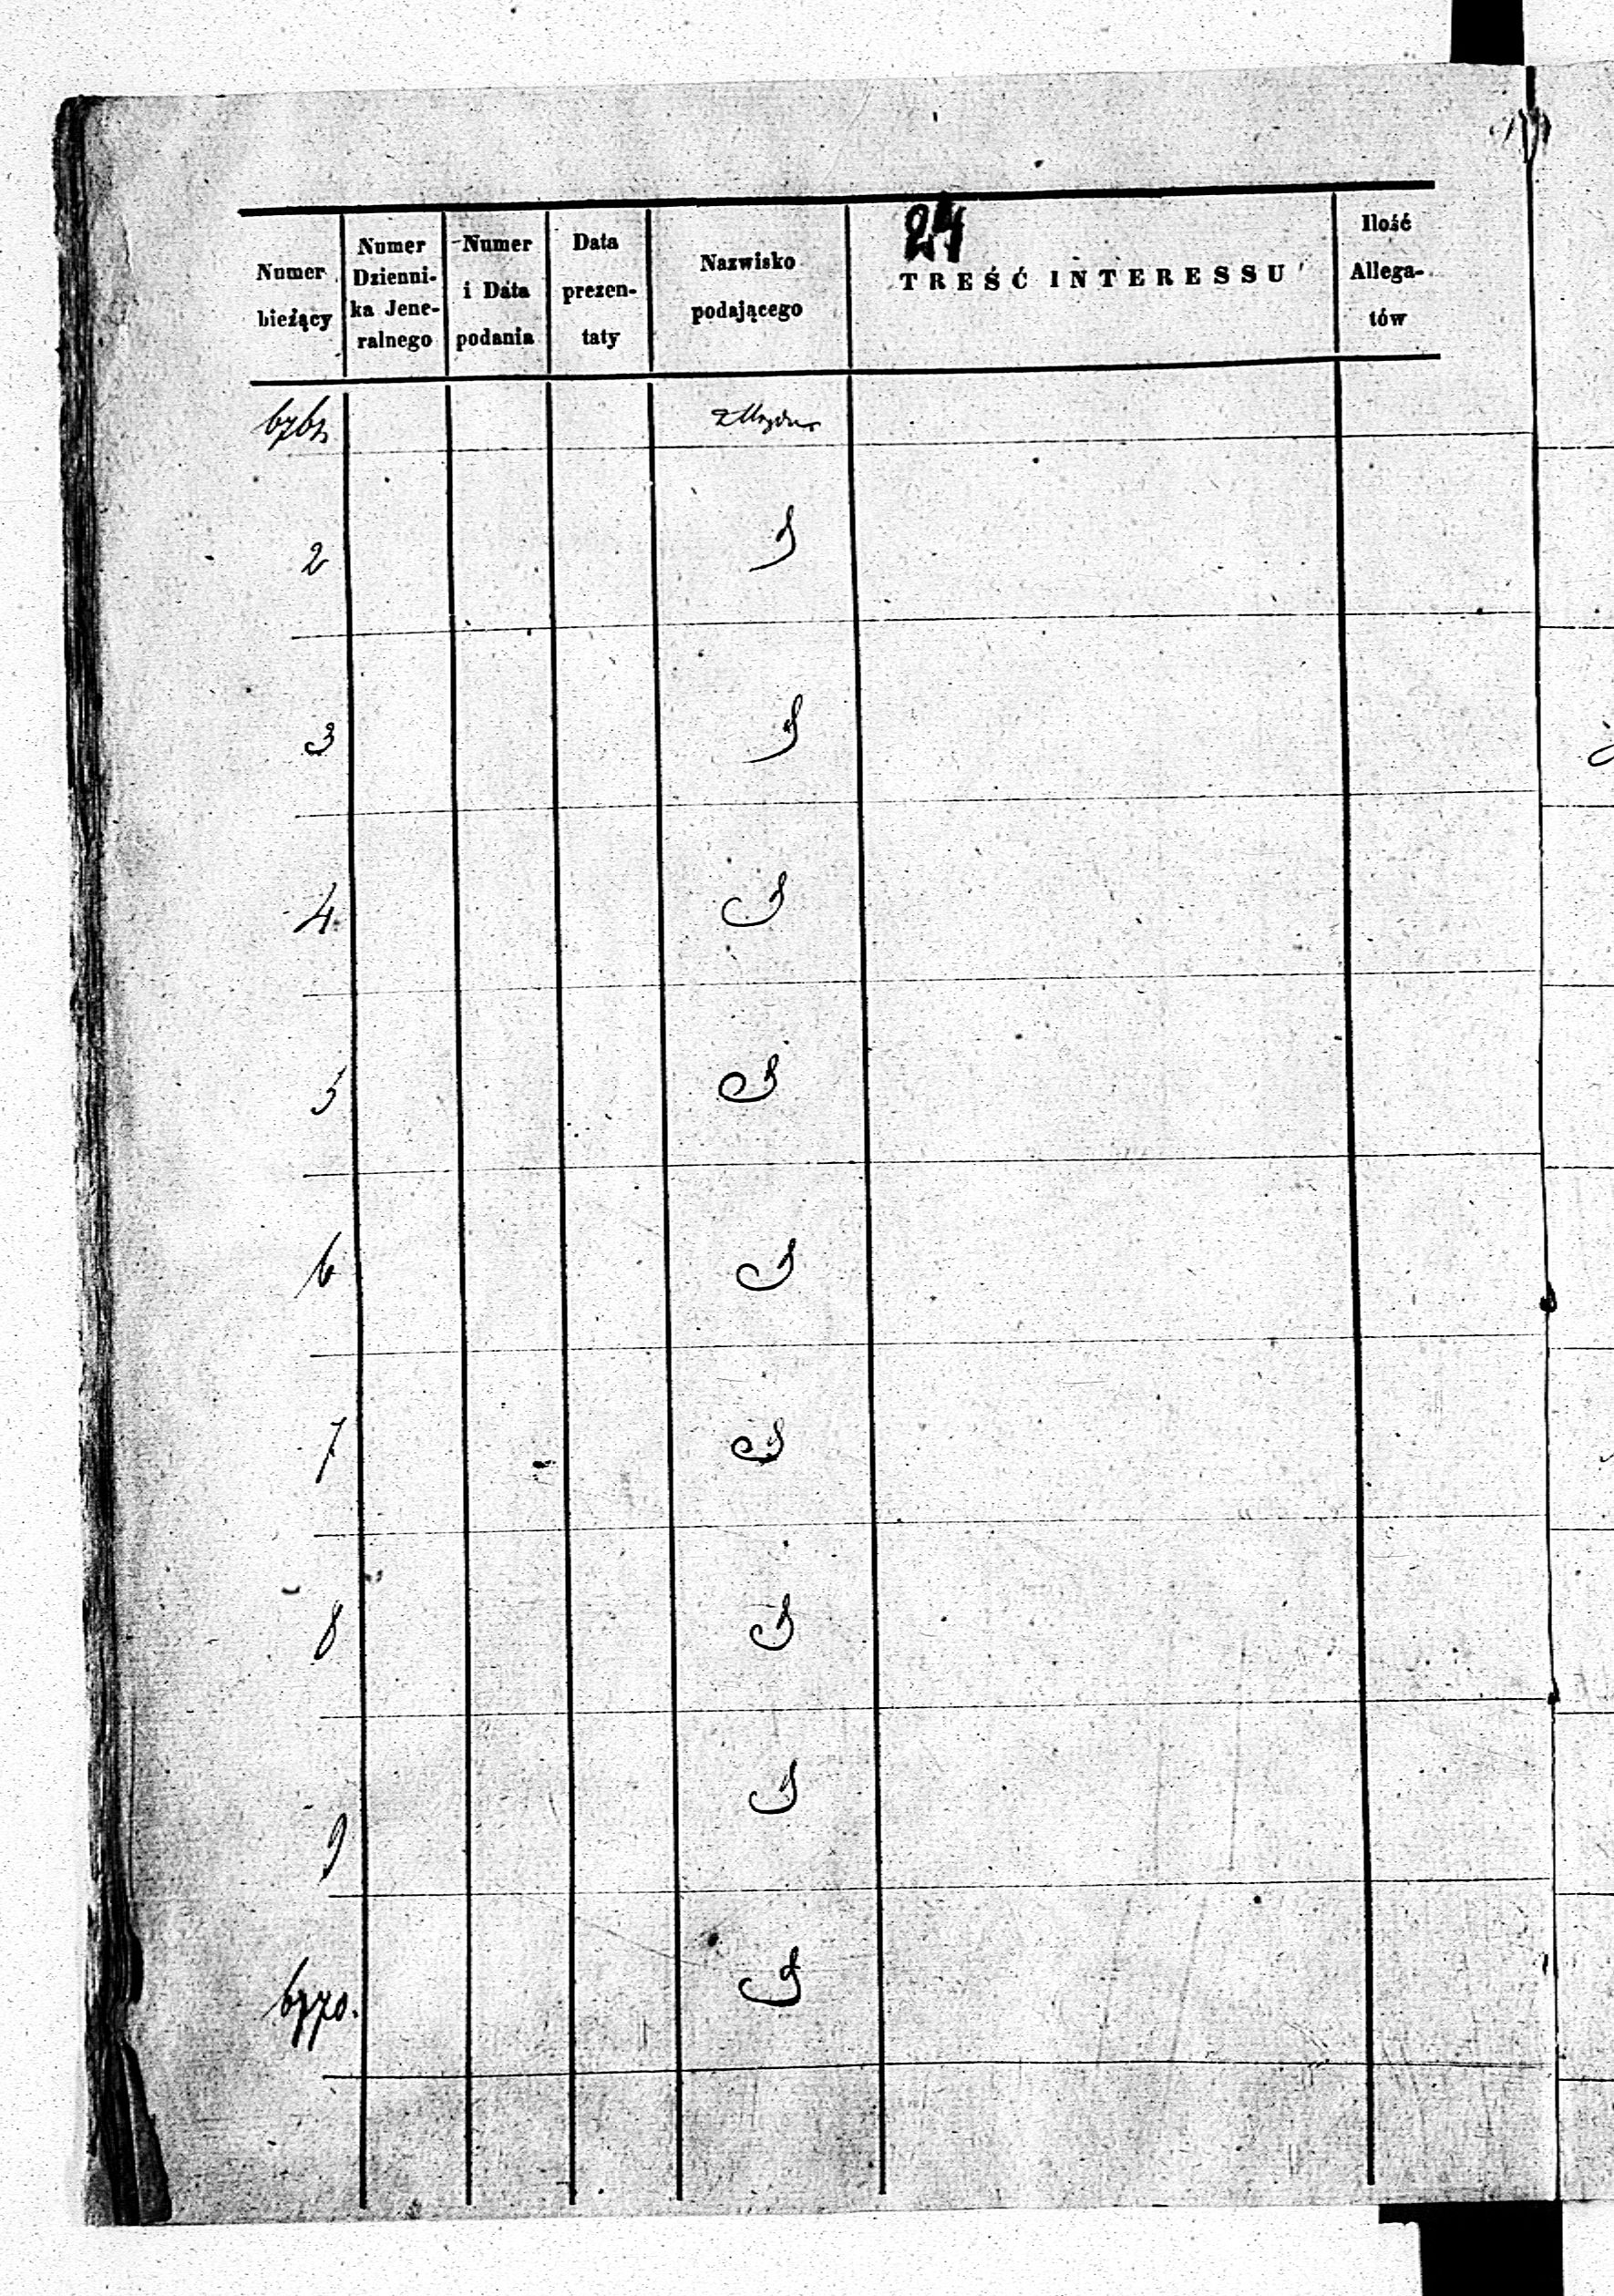 24
Numer bieżący
Numer Dzienni- ka Jene- ralnego
Numer i Data podania
Data prezen- taty
Nazwisko podającego
TREŚĆ INTERESSU
Ilość Allega- tów
z Urzędu
2
3
4
5
6
7
8
9
6770.